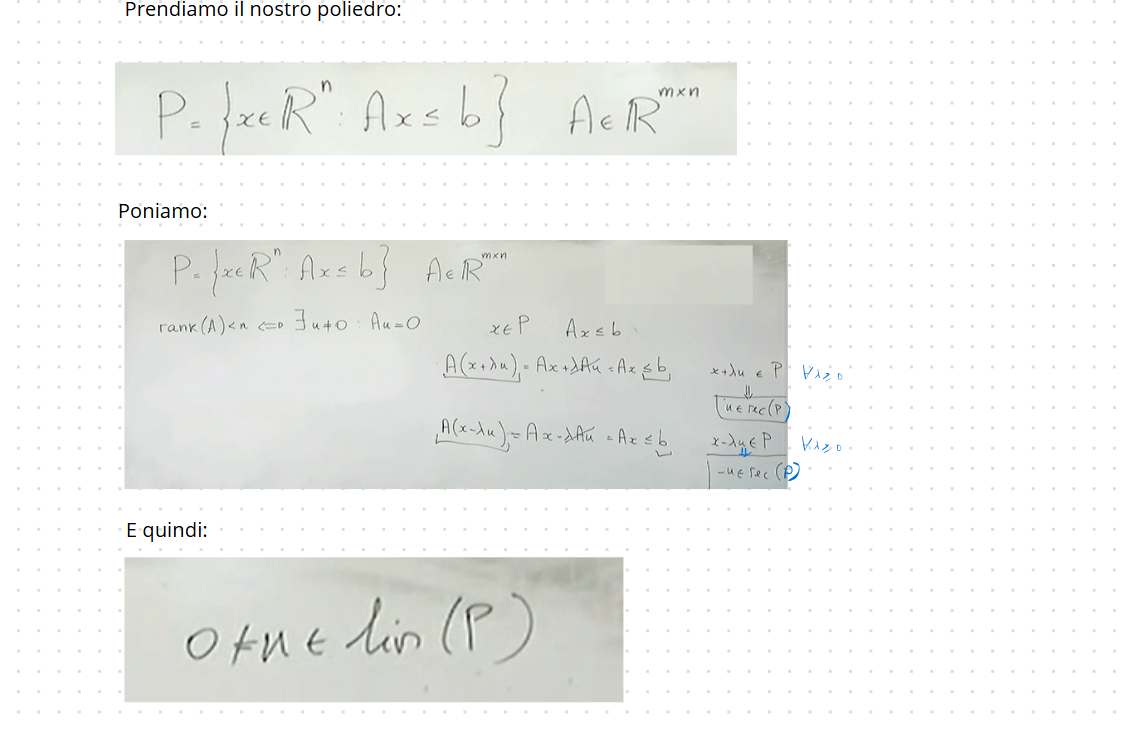 Prendiamo il nostro poliedro:
P = {x ∈ ℝⁿ : Ax ≤ b} A ∈ ℝᵐˣⁿ
Poniamo:
P = {x ∈ ℝⁿ : Ax ≤ b} A ∈ ℝᵐˣⁿ
rank(A) < n <=> ∃ u ≠ 0 : Au = 0 x ∈ P Ax ≤ b
A(x+λu) = Ax + λAu = Ax ≤ b x+λu ∈ P ∀λ≥0
⇓
u ∈ rec(P)
A(x-λu) = Ax - λAu = Ax ≤ b x-λu ∈ P ∀λ≥0
⇓
-u ∈ rec(P)
E quindi:
0 ≠ u ∈ lin(P)